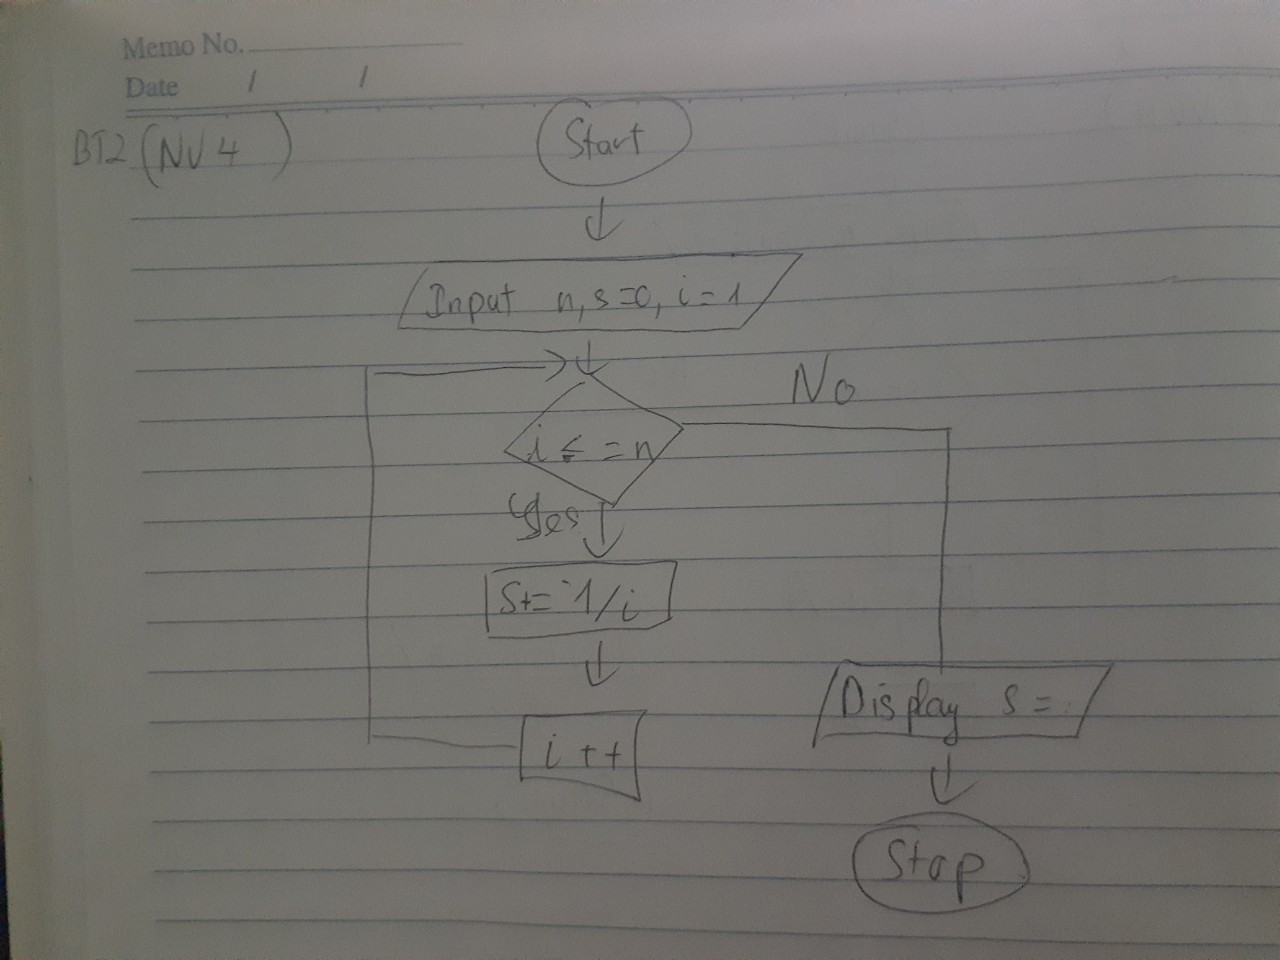 Memo No.
Date / /
BT2 (NV 4)
Start
Input n, s=0, i=1
No
i ≤ = n
Yes
S+= 1/i
Display S =
i ++
Stop